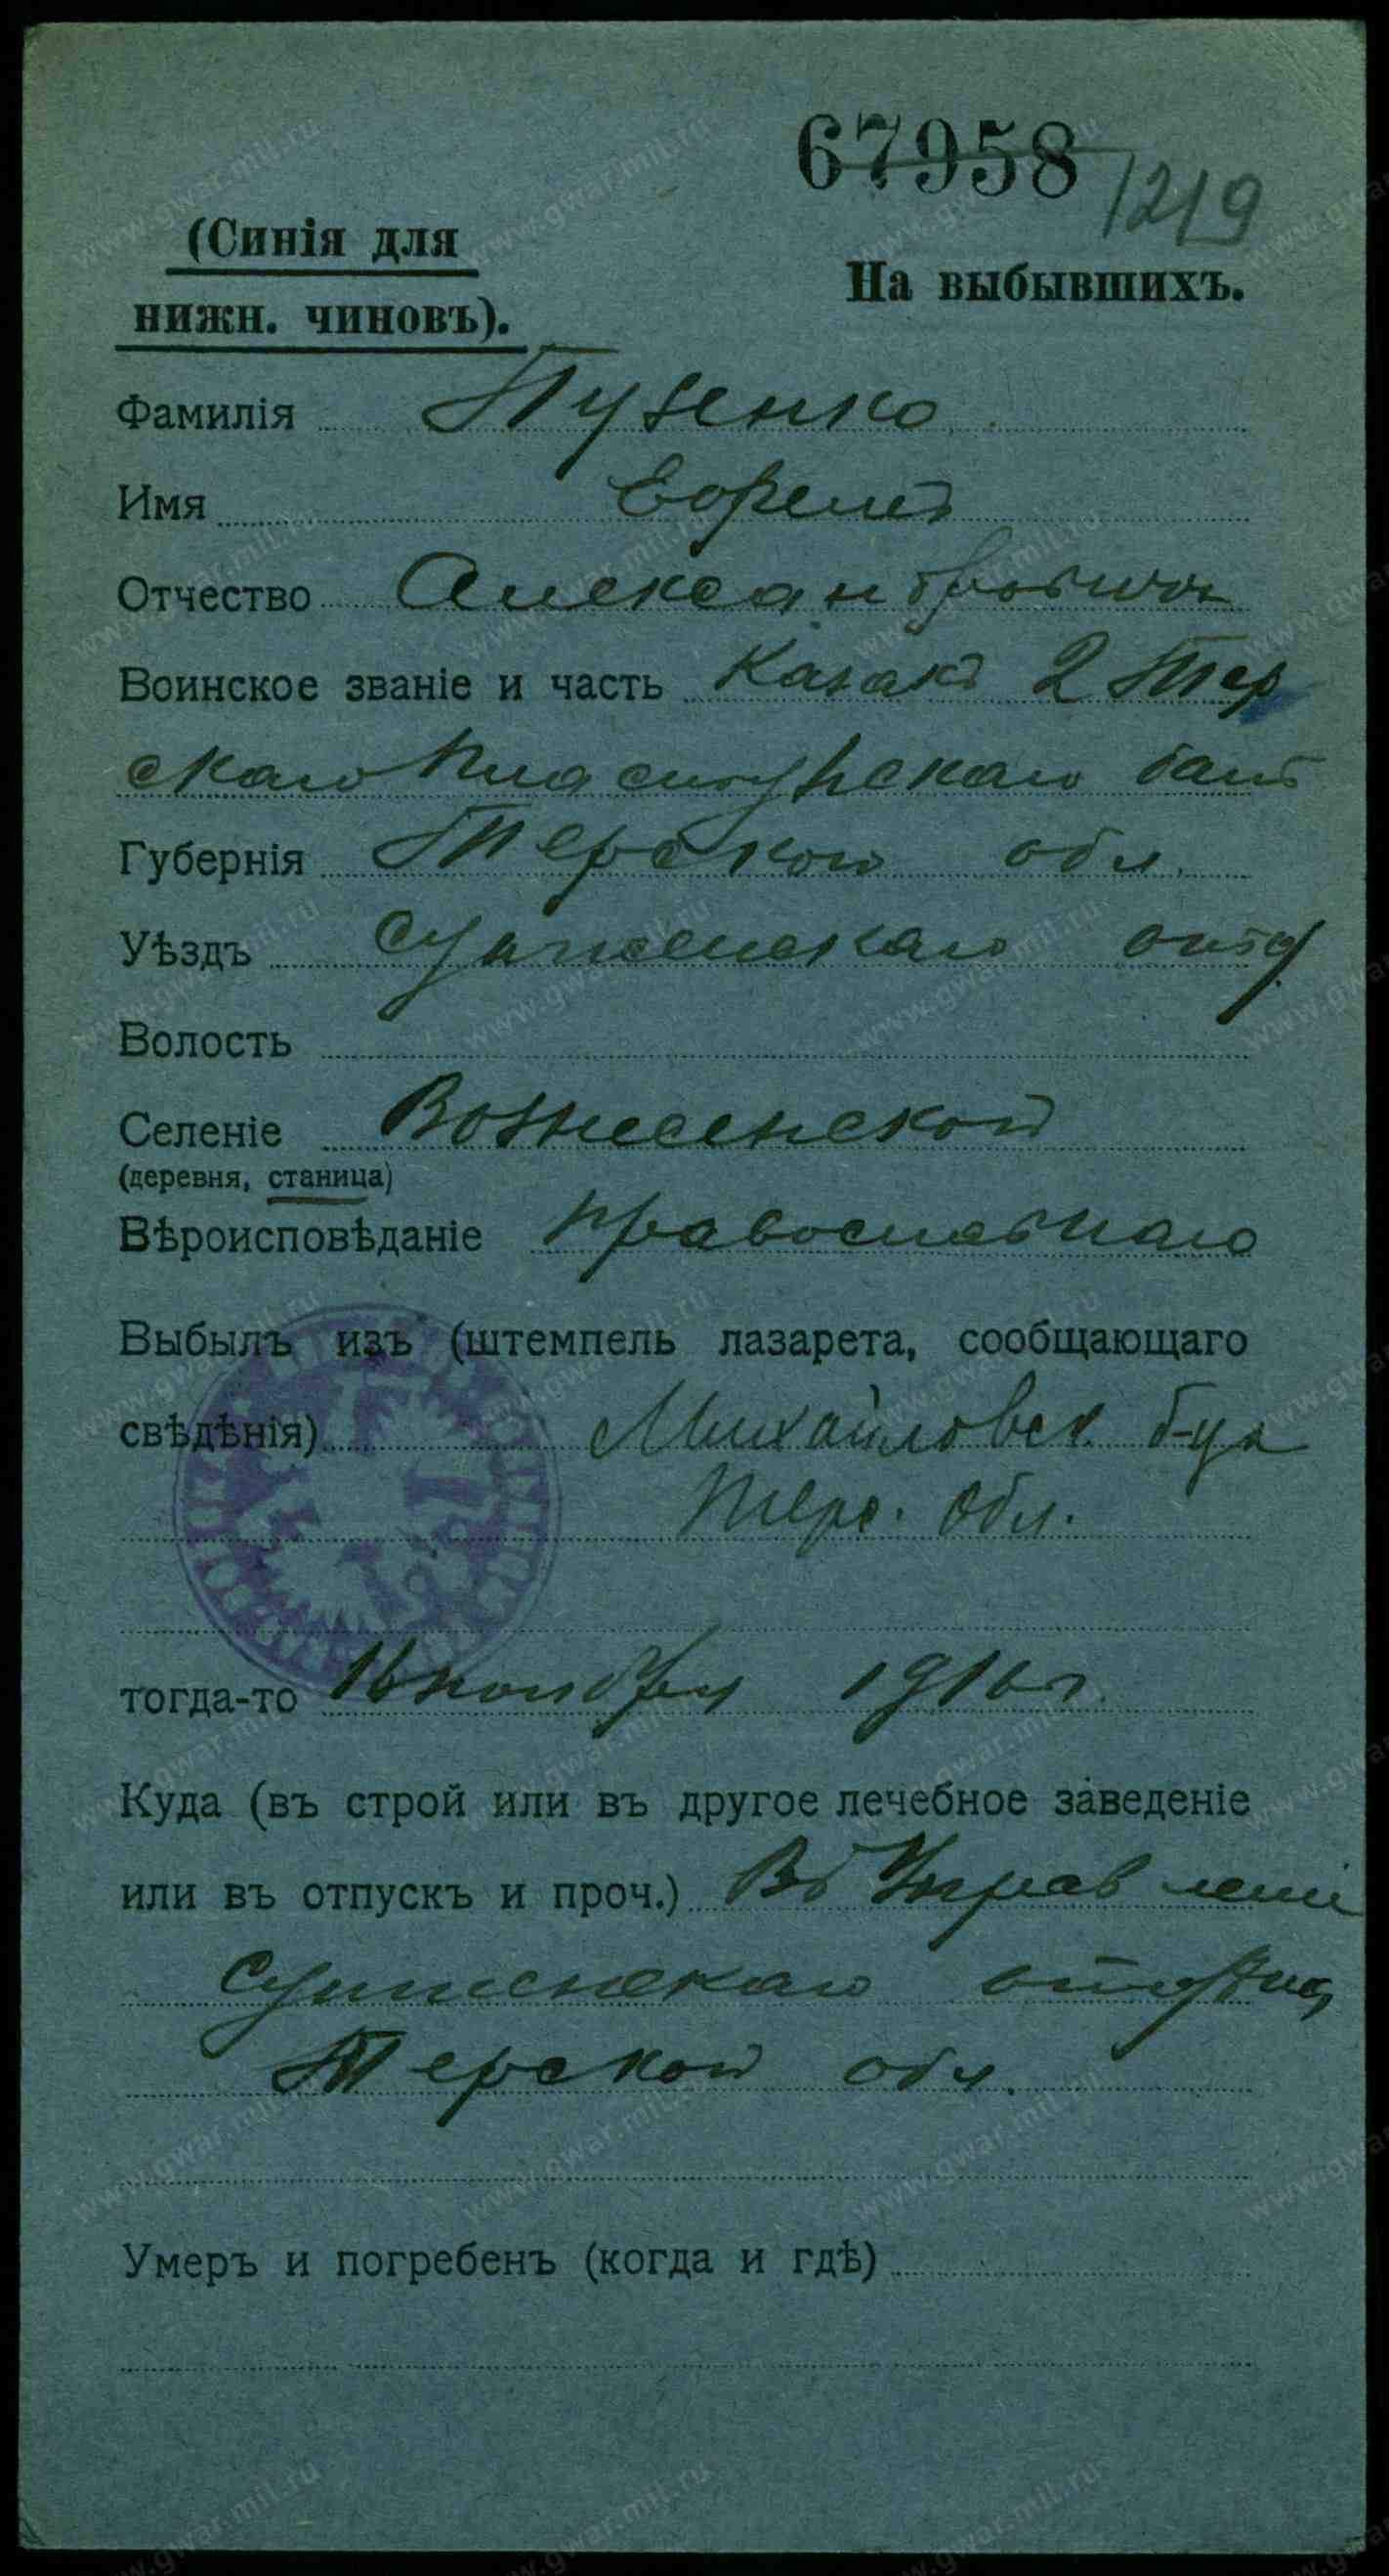 67958
1219
(Синія для
нижн. чиновъ).
На выбывшихъ.
Фамилія Пузенко
Имя Ефремъ
Отчество Александровичъ
Воинское званіе и часть Казакъ 2 Тер
скаго Пластунскаго бат
Губернія Терской обл.
Уѣздъ Сунженскаго отд.
Волость
Селеніе Вознесенской
(деревня, станица)
Вѣроисповѣданіе православнаго
Выбылъ изъ (штемпель лазарета, сообщающаго
свѣдѣнія) Михайловск. б-ца
Терс. Обл.
тогда-то 16 ноября 1916 г.
Куда (въ строй или въ другое лечебное заведеніе
или въ отпускъ и проч.) Въ Управленіе
Сунженскаго отдѣла
Терской обл.
Умеръ и погребенъ (когда и гдѣ)
www.gwar.mil.ru